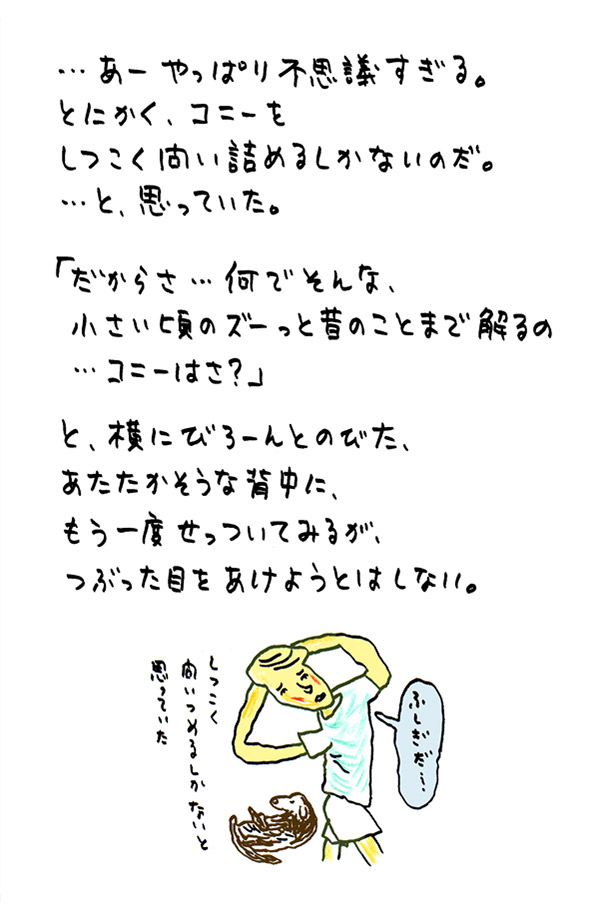 …あー やっぱり不思議すぎる。
とにかく、コニーを
しつこく問い詰めるしかないのだ。
…と、思っていた。
「だからさ…何でそんな、
小さい頃のズーっと昔のことまで解るの
…コニーはさ?」
と、横にびろーんとのびた、
あたたかそうな背中に、
もう一度せっついてみるが、
つぶった目をあけようとはしない。
ふしぎだ…
しつこく
問いつめるしかないと
思っていた